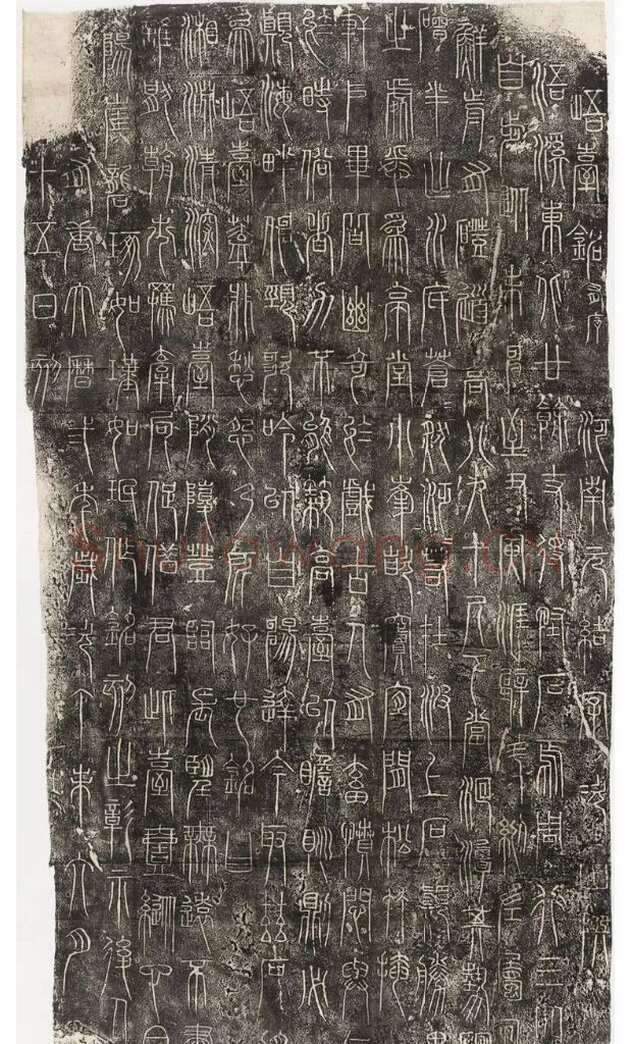 峿臺銘有序 河南元結字次山撰
浯溪東北廿餘丈得怪石焉周行三四
百步從未申至丑寅涯壁斗絕左屬回
鮮前有磴道高八九十尺下當洄潭其勢
磳半出水底蒼然泛若在波上石巔勝異
之處悉為亭堂小峰嵌竇宜間松竹掩
軒戶畢皆幽奇於戲古人有畜憤悶與
於時俗者力不能築高臺以瞻眺則必
巔海畔伸頸歌吟以自暢達今取茲石
為峿臺蓋非愁怨乃所好也銘曰
湘淵清深峿臺陗陵登臨長望無遠不盡
誰厭朝市羈牽局促借君此臺壹縱心目
陽崖礱琢如瑾如珉作銘刻之彰示後人
有唐大曆二年歲次丁未六月
十五日刻
Shufawang.cn